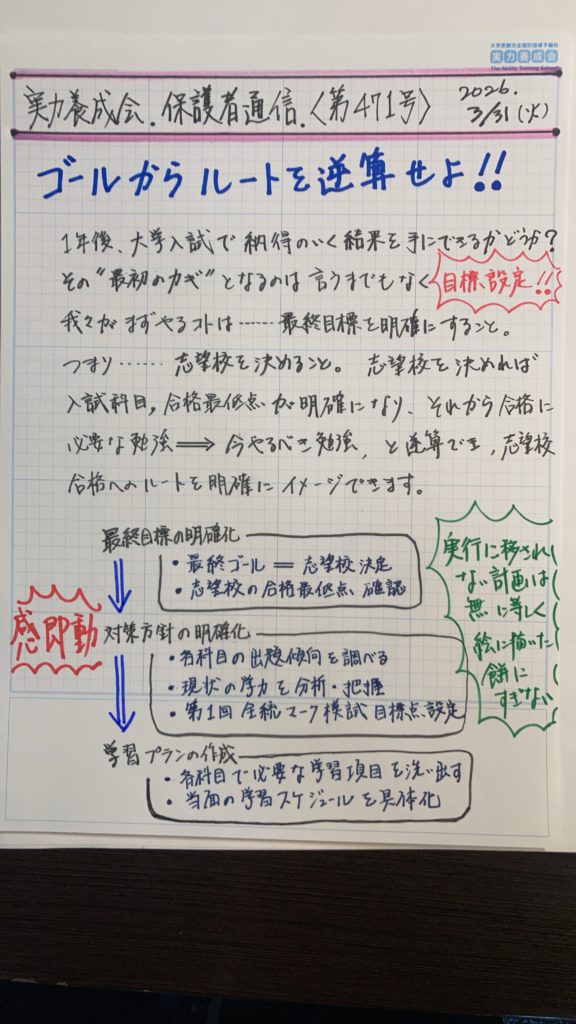 大学受験完全個別指導予備校
実力養成会
The Ability Training School
実力養成会.保護者通信.〈第471号〉
2026.
3/31(火)
ゴールからルートを逆算せよ!!
1年後、大学入試で納得のいく結果を手にできるかどうか?
その“最初のカギ”となるのは言うまでもなく
目標設定!!
我々がまずやるコトは……最終目標を明確にすること。
つまり……志望校を決めること。志望校を決めれば
入試科目,合格最低点が明確になり、それから合格に
必要な勉強⟹今やるべき勉強,と逆算でき,志望校
合格へのルートを明確にイメージできます。
最終目標の明確化
・最終ゴール=志望校決定
・志望校の合格最低点確認
対策方針の明確化
・各科目の出題傾向を調べる
・現状の学力を分析・把握
・第1回全統マーク模試目標点設定
学習プランの作成
・各科目で必要な学習項目を洗い出す
・当面の学習スケジュールを具体化
感即動
実行に移され
ない計画は
無に等しく
絵に描いた
餅に
すぎない